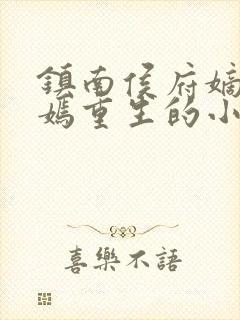 鎮南侯府嫡
嫣重生的小
喜樂不語